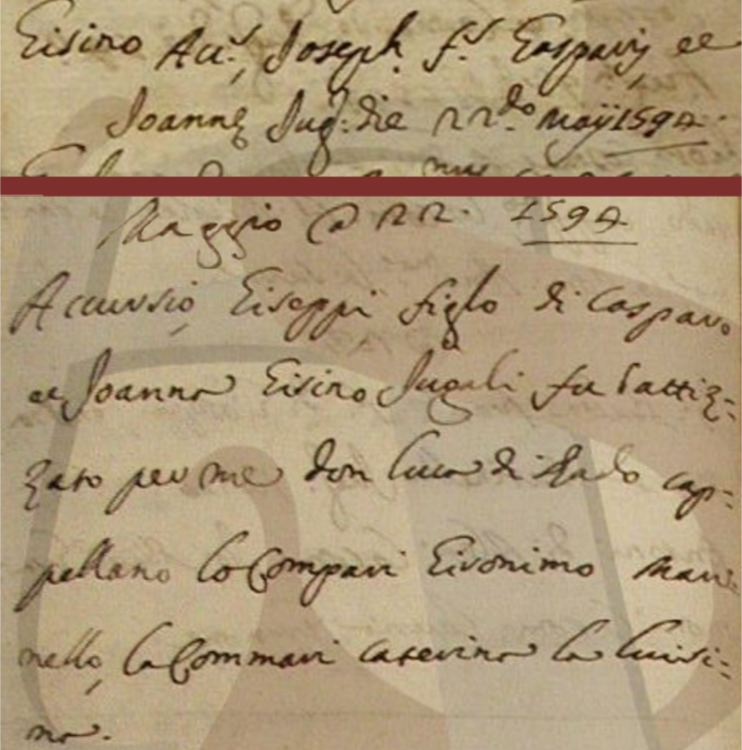 Eisino Accs, Joseph fs Gasparij ee
Joanne Jug: die 22do Maÿ 1594.
Maggio @ 22. 1594
Accursio, Eiseppi figlo di Casparo
ee Joanna Eisino Jugali fu battiz=
zato per me don Luca di cap=
pellano lo Compari Eironimo Mari=
nello, la Commari Caterina la
na.